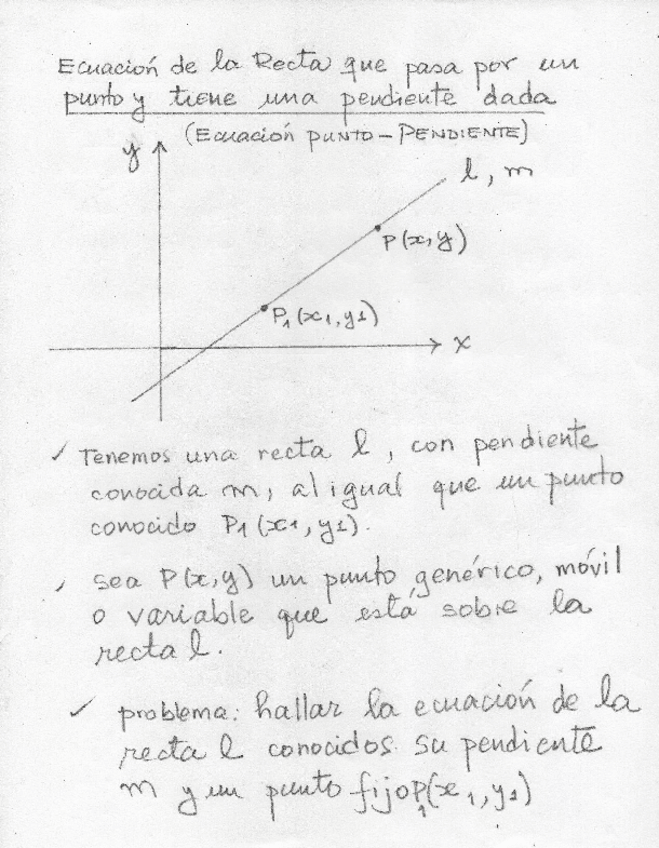 Ecuación de la Recta que pasa por un
punto y tiene una pendiente dada
(Ecuación PUNTO - PENDIENTE)
y
l, m
P(x,y)
P₁(x₁, y₁)
x
✓ Tenemos una recta l, con pendiente
conocida m, al igual que un punto
conocido P₁(x₁, y₁).
, sea P(x,y) un punto genérico, móvil
o variable que está sobre la
recta l.
✓ problema: hallar la ecuación de la
recta l conocidos su pendiente
m y un punto fijo P₁(x₁, y₁)